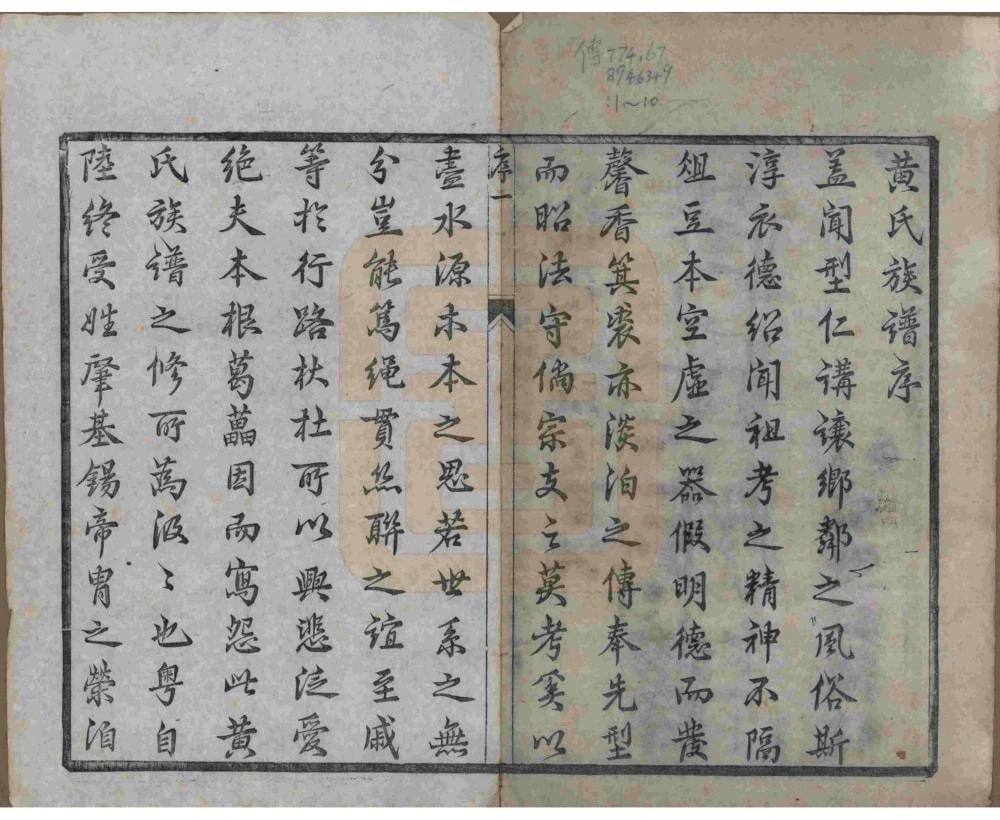 傳774.67
894.6349
:1~10
黄氏族譜序
盖聞型仁講讓鄉鄰之風俗斯
淳衣德紹聞祖考之精神不隔
俎豆本空虛之器假明德而發
馨香箕裘亦淡泊之傳奉先型
而昭法守倘宗支之莫考奚以
序一
盡水源木本之思若世系之無
分豈能篤绳貫絲聯之誼至戚
等於行路杕杜所以興悲泛愛
绝夫本根葛藟因而寓怨此黄
氏族譜之修所為汲〻也粤自
陸终受姓肇基錫帝胄之榮洎